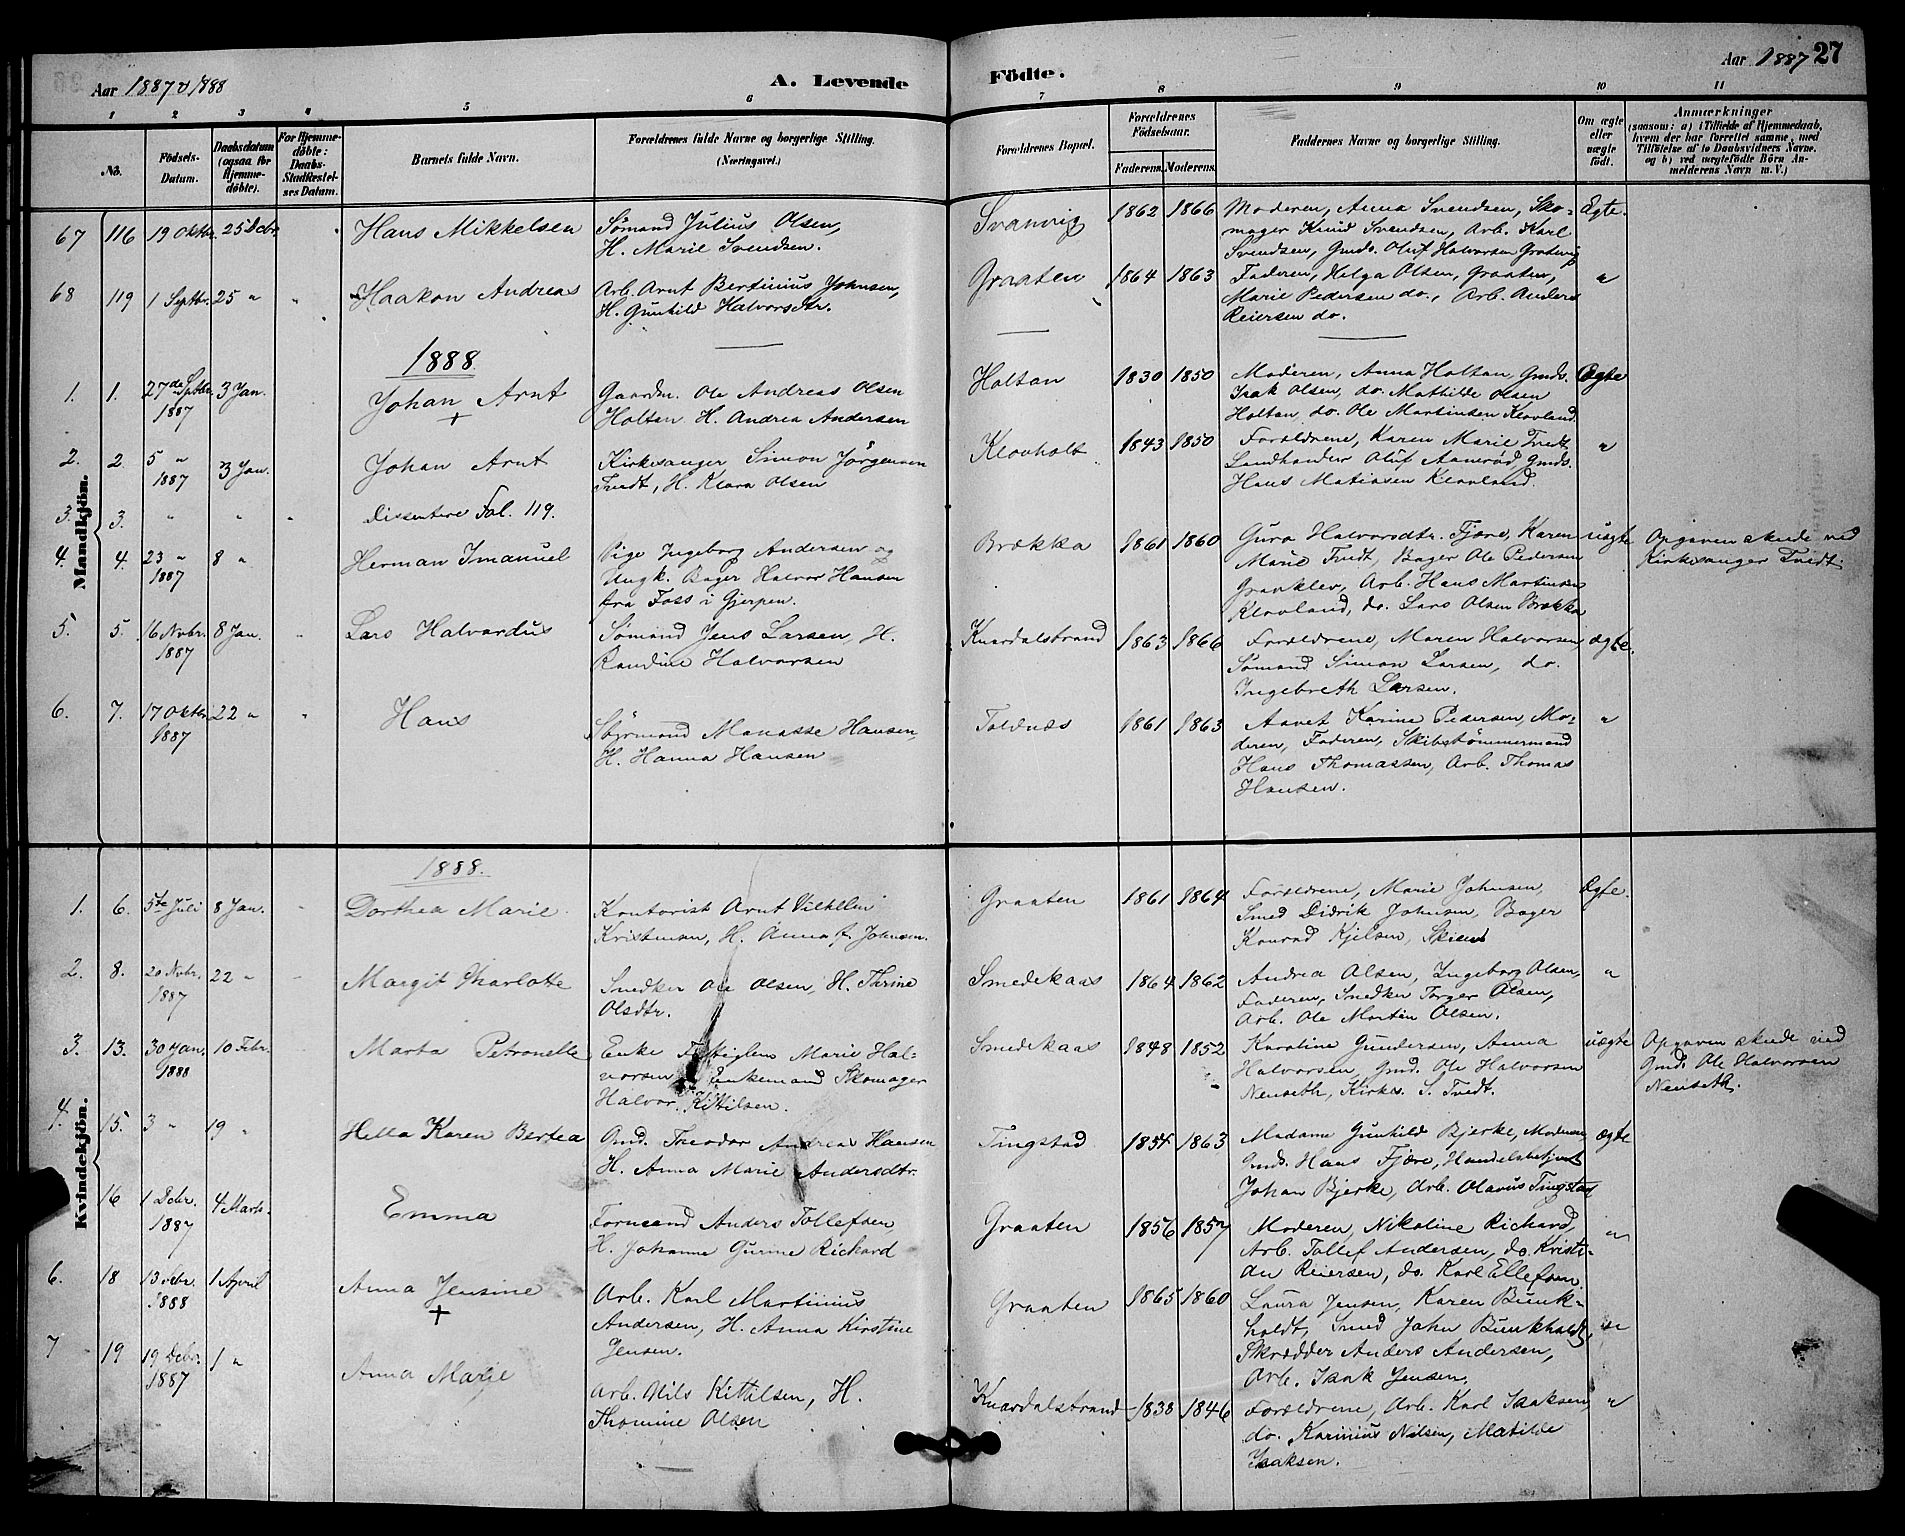 Aar 1887 & 1888
A. Levende
Födte.
Aar 1887 27
1 2 3 4 5 6 7 8 9 10 11
No.
Födsels-
Datum.
Daabsdatum
(ogsaa for
Hjemme-
döbte).
For Hjemme-
döbte:
Daabs-
Stadfæstel-
ses Datum.
Barnets fulde Navn.
Forældrenes fulde Navne og borgerlige Stilling.
(Næringsvei.)
Forældrenes Bopæl.
Forældrenes
Födselsaar.
Faderens. Moderens.
Faddernes Navne og borgerlige Stilling.
Om ægte
eller
uægte
födt.
Anmærkninger
(saasom: a) i Tilfælde af Hjemmedaab,
hvem der har forrettet samme, med
Tilföielse af to Daabsvidners Navne,
og b) ved uægtefödte Börn An-
melderens Navn m.V.)
Mandkjön.
67 116 19 Oktbr. 25 Decbr. Hans Mikkelsen
Sømand Julius Olsen,
H. Marie Svendsen.
Svanvig 1862 1866
Moderen, Anna Svendsen, Sko-
mager Knud Svendsen, Arb. Karl
Svendsen, Gmds. Oluf Halvorsen
Ægte.
68 119 1 Septbr. 25 " " Haakon Andreas
Arb. Arnt Bertinius Johnsen,
H. Gunhild Halvorsdtr.
Graaten 1864 1863
Faderen, Helga Olsen, Graaten,
Marie Pedersen do., Arb. Anders
Reiersen do.
"
1888
1. 1. 27de Septbr. 1887 3 Jan. Johan Arnt +
Gaardm. Ole Andreas Olsen
Holtan H. Andrea Andersen
Holtan 1830 1850
Moderen, Anna Holtan, Gmds.
Isak Olsen, do. Mathilde Olsen
Holtan, do. Ole Martinsen Klovland.
Ægte
2. 2. 5 " 1887 3 Jan. Johan Arnt
Kirkesanger Simon Jörgensen
Tvedt, H. Klara Olsen
Klovholt. 1843 1850
Forældrene, Karen Marie Tvedt,
Landhandler Oluf Aamröd, Gmds.
Hans Matiasen Klovland.
"
3. 3. " " " Dissentere Fol. 119.
4. 4. 23 " 1887 8 " Herman Imanuel
Pige Ingeborg Andersen og
Ungk. Bager Halvor Hansen
fra Foss i Gjerpen.
Brækka 1861 1860
Guro Halvorsdtr. Fjære, Karen
Marie Tvedt, Bager Ole Pedersen
Granklev, Arb. Hans Martinsen
Klovland, do. Lars Olsen Brækka
uægte
Opgaven skede ved
Kirkesanger Tvedt.
5. 5. 16 Novbr. 1887 8 Jan. " Lars Halvardus
Sømand Jens Larsen, H.
Randine Halvorsen
Knardalstrand 1863 1866
Forældrene, Maren Halvorsen,
Sømand Simon Larsen, do.
Ingebreth Larsen.
ægte.
6. 7. 17 Oktbr. 1887 22 " " Hans
Styrmand Manasse Hansen,
H. Hanna Hansen
Toldnæs 1861 1863
Karine Pedersen, Mo-
deren, Faderen, Skibstømmermand
Hans Thomassen, Arb. Thomas
Hansen.
"
Kvindekjön.
1888.
1. 6. 5te Juli 8 Jan. Dorthea Marie.
Kontorist Arnt Vilhellm
Kristensen, H. Anna f. Johnsen.
Graaten 1861 1864
Forældrene, Marie Johnsen,
Smed Didrik Johnsen, Bager
Konrad Kjelsen, Skien
Ægte.
2. 8. 20 Novbr. 1887 22 " Margit Charlotte
Snedker Ole Olsen, H. Thrine
Olsdtr.
Smedekaas 1864 1862
Andrea Olsen, Ingeborg Olsen,
Faderen, Snedker Torger Olsen,
Arb. Ole Martin Olsen.
"
3. 13. 30 Jan. 1888 10 Febr. Marta Petronelle
Enke Marie Hal-
vorsen Enkemand Skomager
Halvor Kittilsen.
Smedekaas 1848 1852
Karoline Gundersen, Anna
Halvorsen, Gmd. Ole Halvorsen
Nenseth, Kirkes. S. Tvedt.
uægte
Opgaven skede ved
Gmd. Ole Halvorsen
Nenseth.
4. 15. 3 " 19 " Hella Karen Bertea
Gmd. Theodor Andreas Hansen
H. Anna Marie Andersdtr.
Tingstad 1854 1863
Madame Gunhild Bjerke, Moderen,
Gmds. Hans Fjære, Handelsbetjent
Johan Bjerke, Arb. Olavus Tingstad
ægte
16 1 Decbr. 1887 4 Marts. Emma
Formand Anders Tollefsen,
H. Johanne Gurine Richard
Graaten 1856 1857
Moderen, Nikoline Richard,
Arb. Tollef Andersen, do. Kristi-
an Reiersen, do. Karl Ellefsen.
"
6. 18 13 Febr. 1888 1 April Anna Jensine +
Arb. Karl Martinius
Andersen, H. Anna Kirstine
Jensen.
Graaten 1865 1860
Laura Jensen, Karen Bunk-
holdt, Smed John Bunkholdt,
Skrædder Anders Andersen,
Arb. Isak Jensen.
"
7 19 19 Decbr. 1887 1 " Anna Marie
Arb. Nils Kittilsen, H.
Thomine Olsen
Knardalstrand 1838 1846
Forældrene, Arb. Karl Isaksen,
do. Karinius Nilsen, Matilde
Isaksen.
"